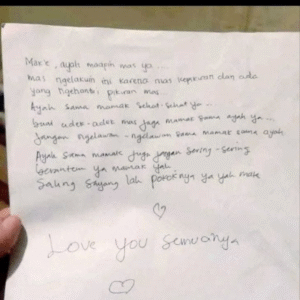 Mak'e, ayah maapin mas ya
Mas ngelakuin ini karena mas kepikiran dan ada
yang ngehantui pikiran mas
Ayah sama mamak sehat-sehat ya
buat adek-adek mas jaga mamak sama ayah ya
jangan ngelawan-ngelawan sama mamak sama ayah
Ayah sama mamak juga jangan sering-sering
berantem ya mamak yah
saling sayang lah pokoknya ya yah mak
Love you semuanya